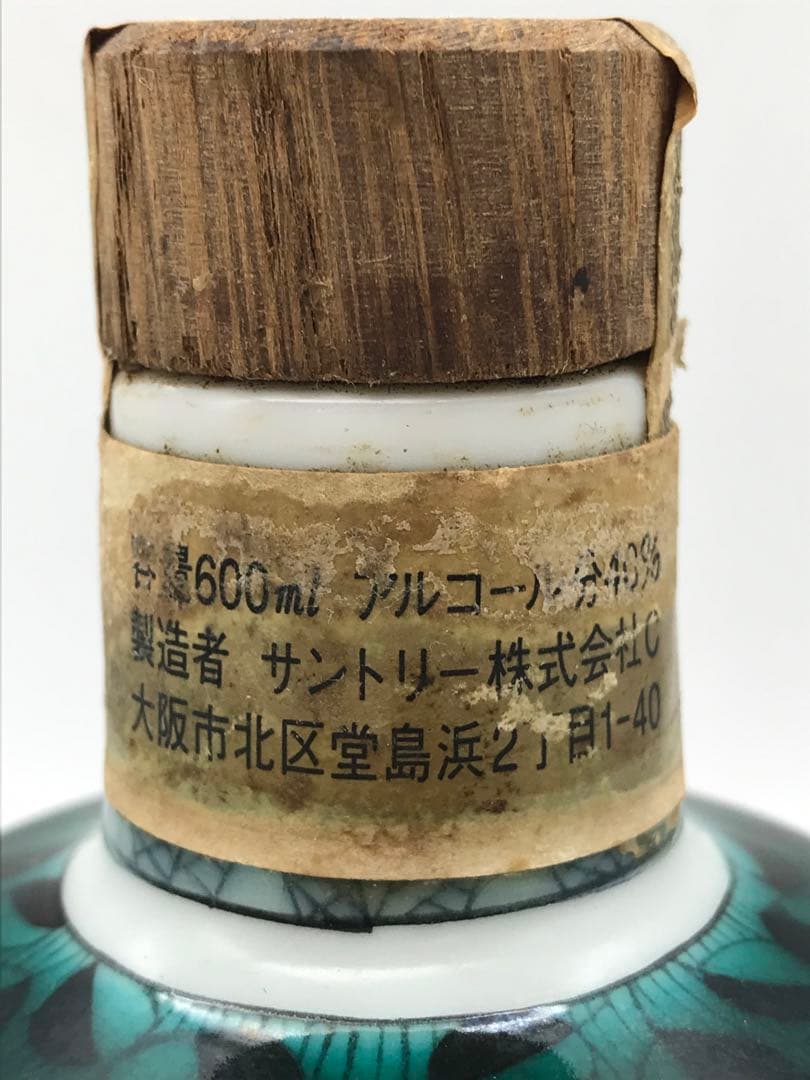 容量600ml アルコール分43%
製造者 サントリー株式会社C
大阪市北区堂島浜2丁目1-40